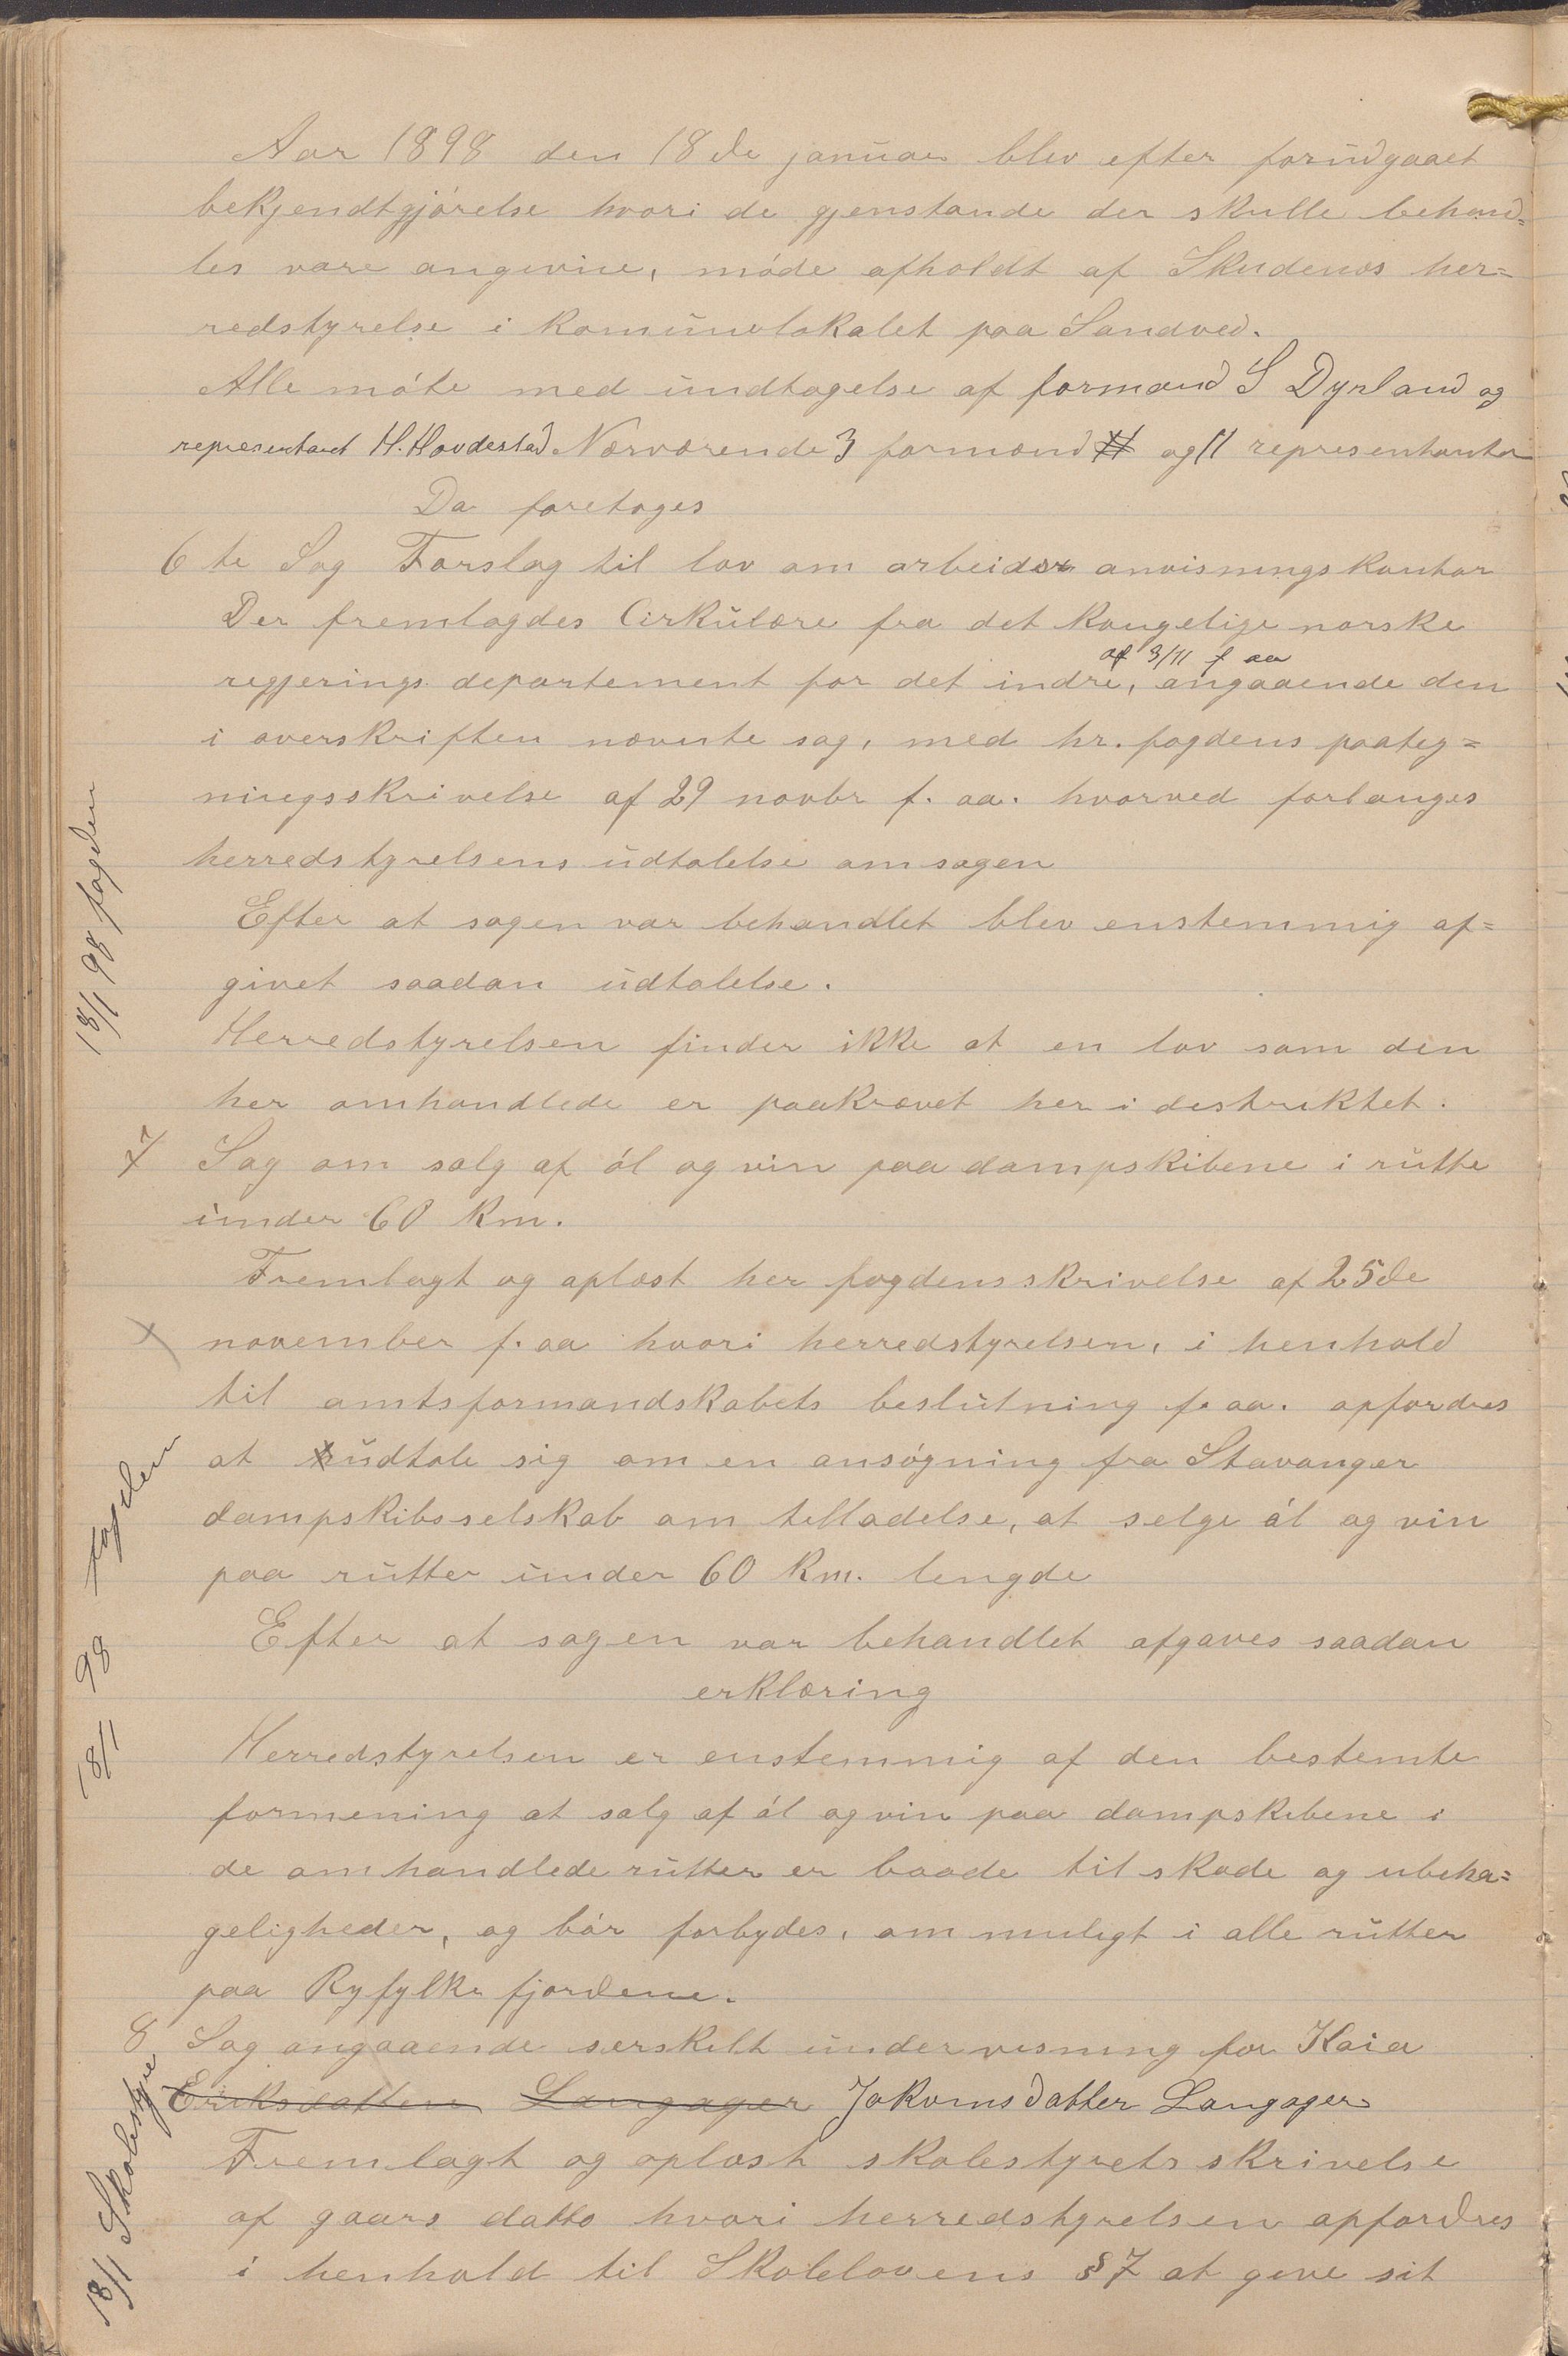 Aar 1898 den 18de januar blev efter forudgaaet
bekjendtgjørelse hvori de gjenstande der skulle behand=
les vare angivne, møde afholdt af Skudenes her=
redstyrelse i komunelokalet paa Sandved.
Alle møte med undtagelse af formand S Dyrland og
representant H. Hovdestad Nærværende 3 formænd og 11 representanter
Da foretoges
6te Sag Forslag til lov om arbeider anvisningskontor
Der fremlagdes Cirkulære fra det kongelige norske
af 3/11 f aa
regjerings departement for det indre, angaaende den
i overskriften nævnte sag, med hr. fogdens paateg=
ningsskrivelse af 29 novbr f. aa. hvorved forlanges
herredstyrelsens udtalelse om sagen
Efter at sagen var behandlet blev enstemmig af=
givet saadan udtalelse.
Herredstyrelsen finder ikke at en lov som den
her omhandlede er paakrævet her i destriktet.
18/1 98 fogden
7 Sag om salg af øl og vin paa dampskibene i rutte
under 60 km.
Fremlagt og oplæst her fogdens skrivelse af 25de
november f. aa hvori herredstyrelsen, i henhold
til amtsformandskabets beslutning f. aa. opfordres
at udtale sig om en ansøgning fra Stavanger
dampskibsselskab om telladelse, at selge øl og vin
paa rutter under 60 km. lengde
Efter at sagen var behandlet afgaves saadan
erklæring
Herredstyrelsen er enstemmig af den bestemte
formening at salg af øl og vin paa dampskibene i
de omhandlede rutter er baade til skade og ubeha=
geligheder, og bør forbydes, om muligt i alle rutter
paa Ryfylke fjordene.
18/1 98 fogden
8 Sag angaaende serskilt undervisning for Kaia
Eriksdatter Langager Jakomsdatter Langager
Fremlagt og oplæst skolestyrets skrivelse
af gaars datto hvori herredstyrelsen opfordres
i henhold til Skolelovens § 7 at give sit
18/1 Skolestyre